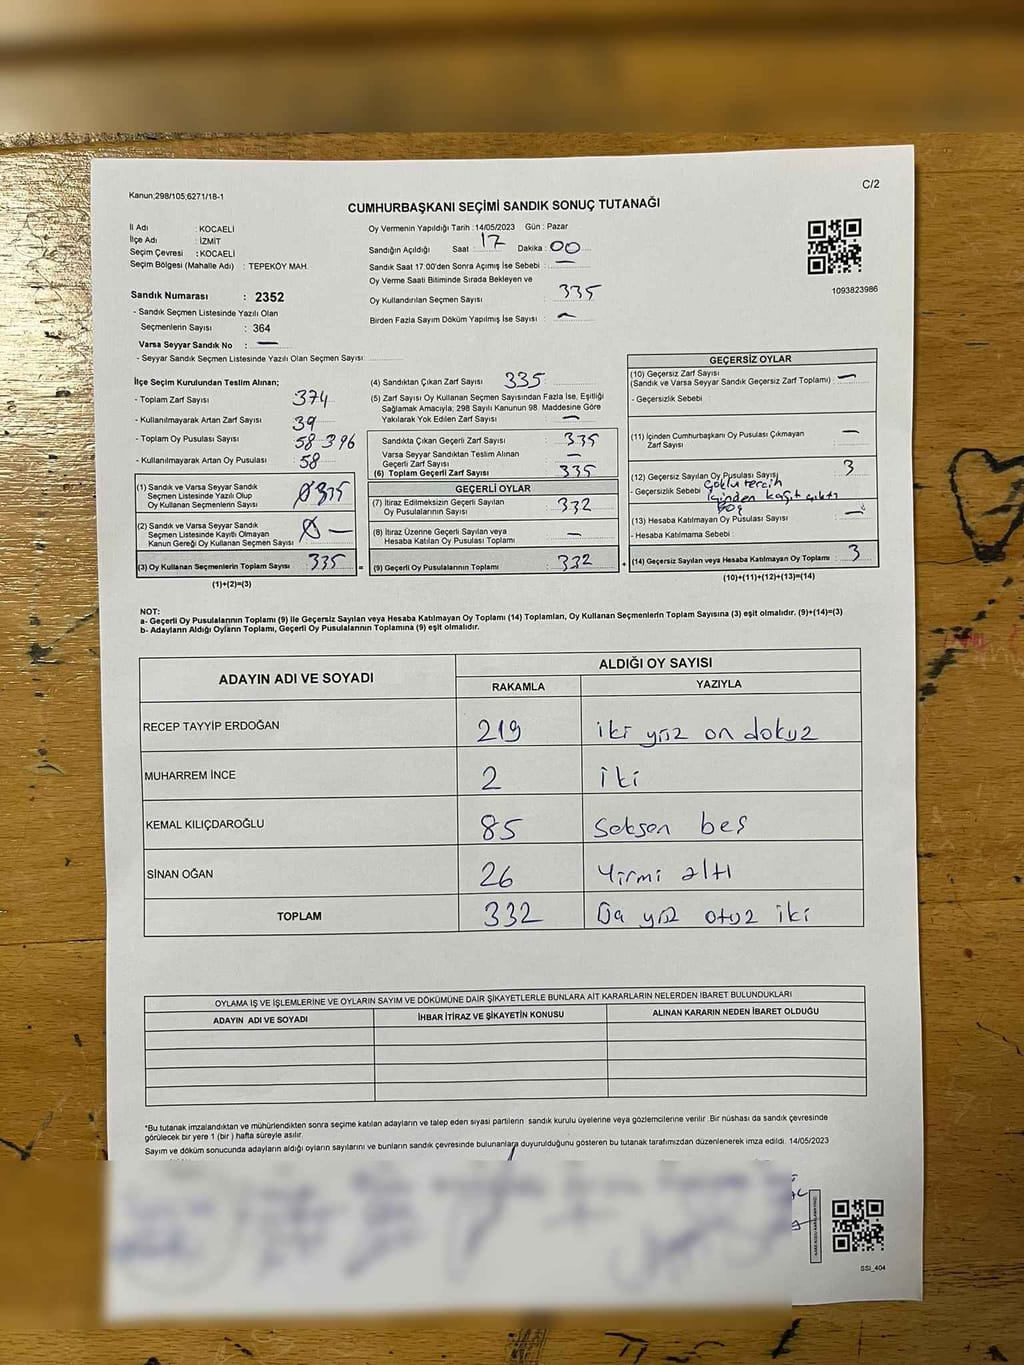 Kanun;298/105;6271/18-1
C/2
CUMHURBAŞKANI SEÇİMİ SANDIK SONUÇ TUTANAĞI
İl Adı : KOCAELİ
İlçe Adı : İZMİT
Seçim Çevresi : KOCAELİ
Seçim Bölgesi (Mahalle Adı) : TEPEKÖY MAH.
Sandık Numarası : 2352
- Sandık Seçmen Listesinde Yazılı Olan
Seçmenlerin Sayısı : 364
Varsa Seyyar Sandık No : —
- Seyyar Sandık Seçmen Listesinde Yazılı Olan Seçmen Sayısı:
Oy Vermenin Yapıldığı Tarih : 14/05/2023 Gün : Pazar
Sandığın Açıldığı Saat : 17 Dakika : 00
Sandık Saat 17:00'den Sonra Açımış İse Sebebi : —
Oy Verme Saati Bitiminde Sırada Bekleyen ve
Oy Kullandırılan Seçmen Sayısı : 335
Birden Fazla Sayım Döküm Yapılmış İse Sayısı : —
1093823986
İlçe Seçim Kurulundan Teslim Alınan;
- Toplam Zarf Sayısı : 374
- Kullanılmayarak Artan Zarf Sayısı : 39
- Toplam Oy Pusulası Sayısı : 58 396
- Kullanılmayarak Artan Oy Pusulası : 58
(1) Sandık ve Varsa Seyyar Sandık
Seçmen Listesinde Yazılı Olup
Oy Kullanan Seçmenlerin Sayısı : 335
(2) Sandık ve Varsa Seyyar Sandık
Seçmen Listesinde Kayıtlı Olmayan
Kanun Gereği Oy Kullanan Seçmen Sayısı : —
(3) Oy Kullanan Seçmenlerin Toplam Sayısı : 335
(1)+(2)=(3)
(4) Sandıktan Çıkan Zarf Sayısı : 335
(5) Zarf Sayısı Oy Kullanan Seçmen Sayısından Fazla İse, Eşitliği
Sağlamak Amacıyla; 298 Sayılı Kanunun 98. Maddesine Göre
Yakılarak Yok Edilen Zarf Sayısı : —
Sandıkta Çıkan Geçerli Zarf Sayısı : 335
Varsa Seyyar Sandıktan Teslim Alınan
Geçerli Zarf Sayısı : —
(6) Toplam Geçerli Zarf Sayısı : 335
GEÇERLİ OYLAR
(7) İtiraz Edilmeksizin Geçerli Sayılan
Oy Pusulalarının Sayısı : 332
(8) İtiraz Üzerine Geçerli Sayılan veya
Hesaba Katılan Oy Pusulası Toplamı : —
(9) Geçerli Oy Pusulalarının Toplamı : 332
GEÇERSİZ OYLAR
(10) Geçersiz Zarf Sayısı
(Sandık ve Varsa Seyyar Sandık Geçersiz Zarf Toplamı) : —
- Geçersizlik Sebebi :
(11) İçinden Cumhurbaşkanı Oy Pusulası Çıkmayan
Zarf Sayısı : —
(12) Geçersiz Sayılan Oy Pusulası Sayısı : 3
- Geçersizlik Sebebi : Çoklu tercih
içinden kağıt çıktı
Boş
(13) Hesaba Katılmayan Oy Pusulası Sayısı : —
- Hesaba Katılmama Sebebi :
(14) Geçersiz Sayılan veya Hesaba Katılmayan Oy Toplamı : 3
(10)+(11)+(12)+(13)=(14)
NOT:
a- Geçerli Oy Pusulalarının Toplamı (9) ile Geçersiz Sayılan veya Hesaba Katılmayan Oy Toplamı (14) Toplamları, Oy Kullanan Seçmenlerin Toplam Sayısına (3) eşit olmalıdır. (9)+(14)=(3)
b- Adayların Aldığı Oyların Toplamı, Geçerli Oy Pusulalarının Toplamına (9) eşit olmalıdır.
ADAYIN ADI VE SOYADI
ALDIĞI OY SAYISI
RAKAMLA YAZIYLA
RECEP TAYYİP ERDOĞAN 219 iki yüz on dokuz
MUHARREM İNCE 2 iki
KEMAL KILIÇDAROĞLU 85 Seksen beş
SİNAN OĞAN 26 Yirmi altı
TOPLAM 332 yüz otuz iki
OYLAMA İŞ VE İŞLEMLERİNE VE OYLARIN SAYIM VE DÖKÜMÜNE DAİR ŞİKAYETLERLE BUNLARA AİT KARARLARIN NELERDEN İBARET BULUNDUKLARI
ADAYIN ADI VE SOYADI İHBAR İTİRAZ VE ŞİKAYETİN KONUSU ALINAN KARARIN NEDEN İBARET OLDUĞU
*Bu tutanak imzalandıktan ve mühürlendikten sonra seçime katılan adayların ve talep eden siyasi partilerin sandık kurulu üyelerine veya gözlemcilerine verilir. Bir nüshası da sandık çevresinde
görülecek bir yere 1 (bir) hafta süreyle asılır.
Sayım ve döküm sonucunda adayların aldığı oyların sayılarını ve bunların sandık çevresinde bulunanlara duyurulduğunu gösteren bu tutanak tarafımızdan düzenlenerek imza edildi. 14/05/2023
SSI_404